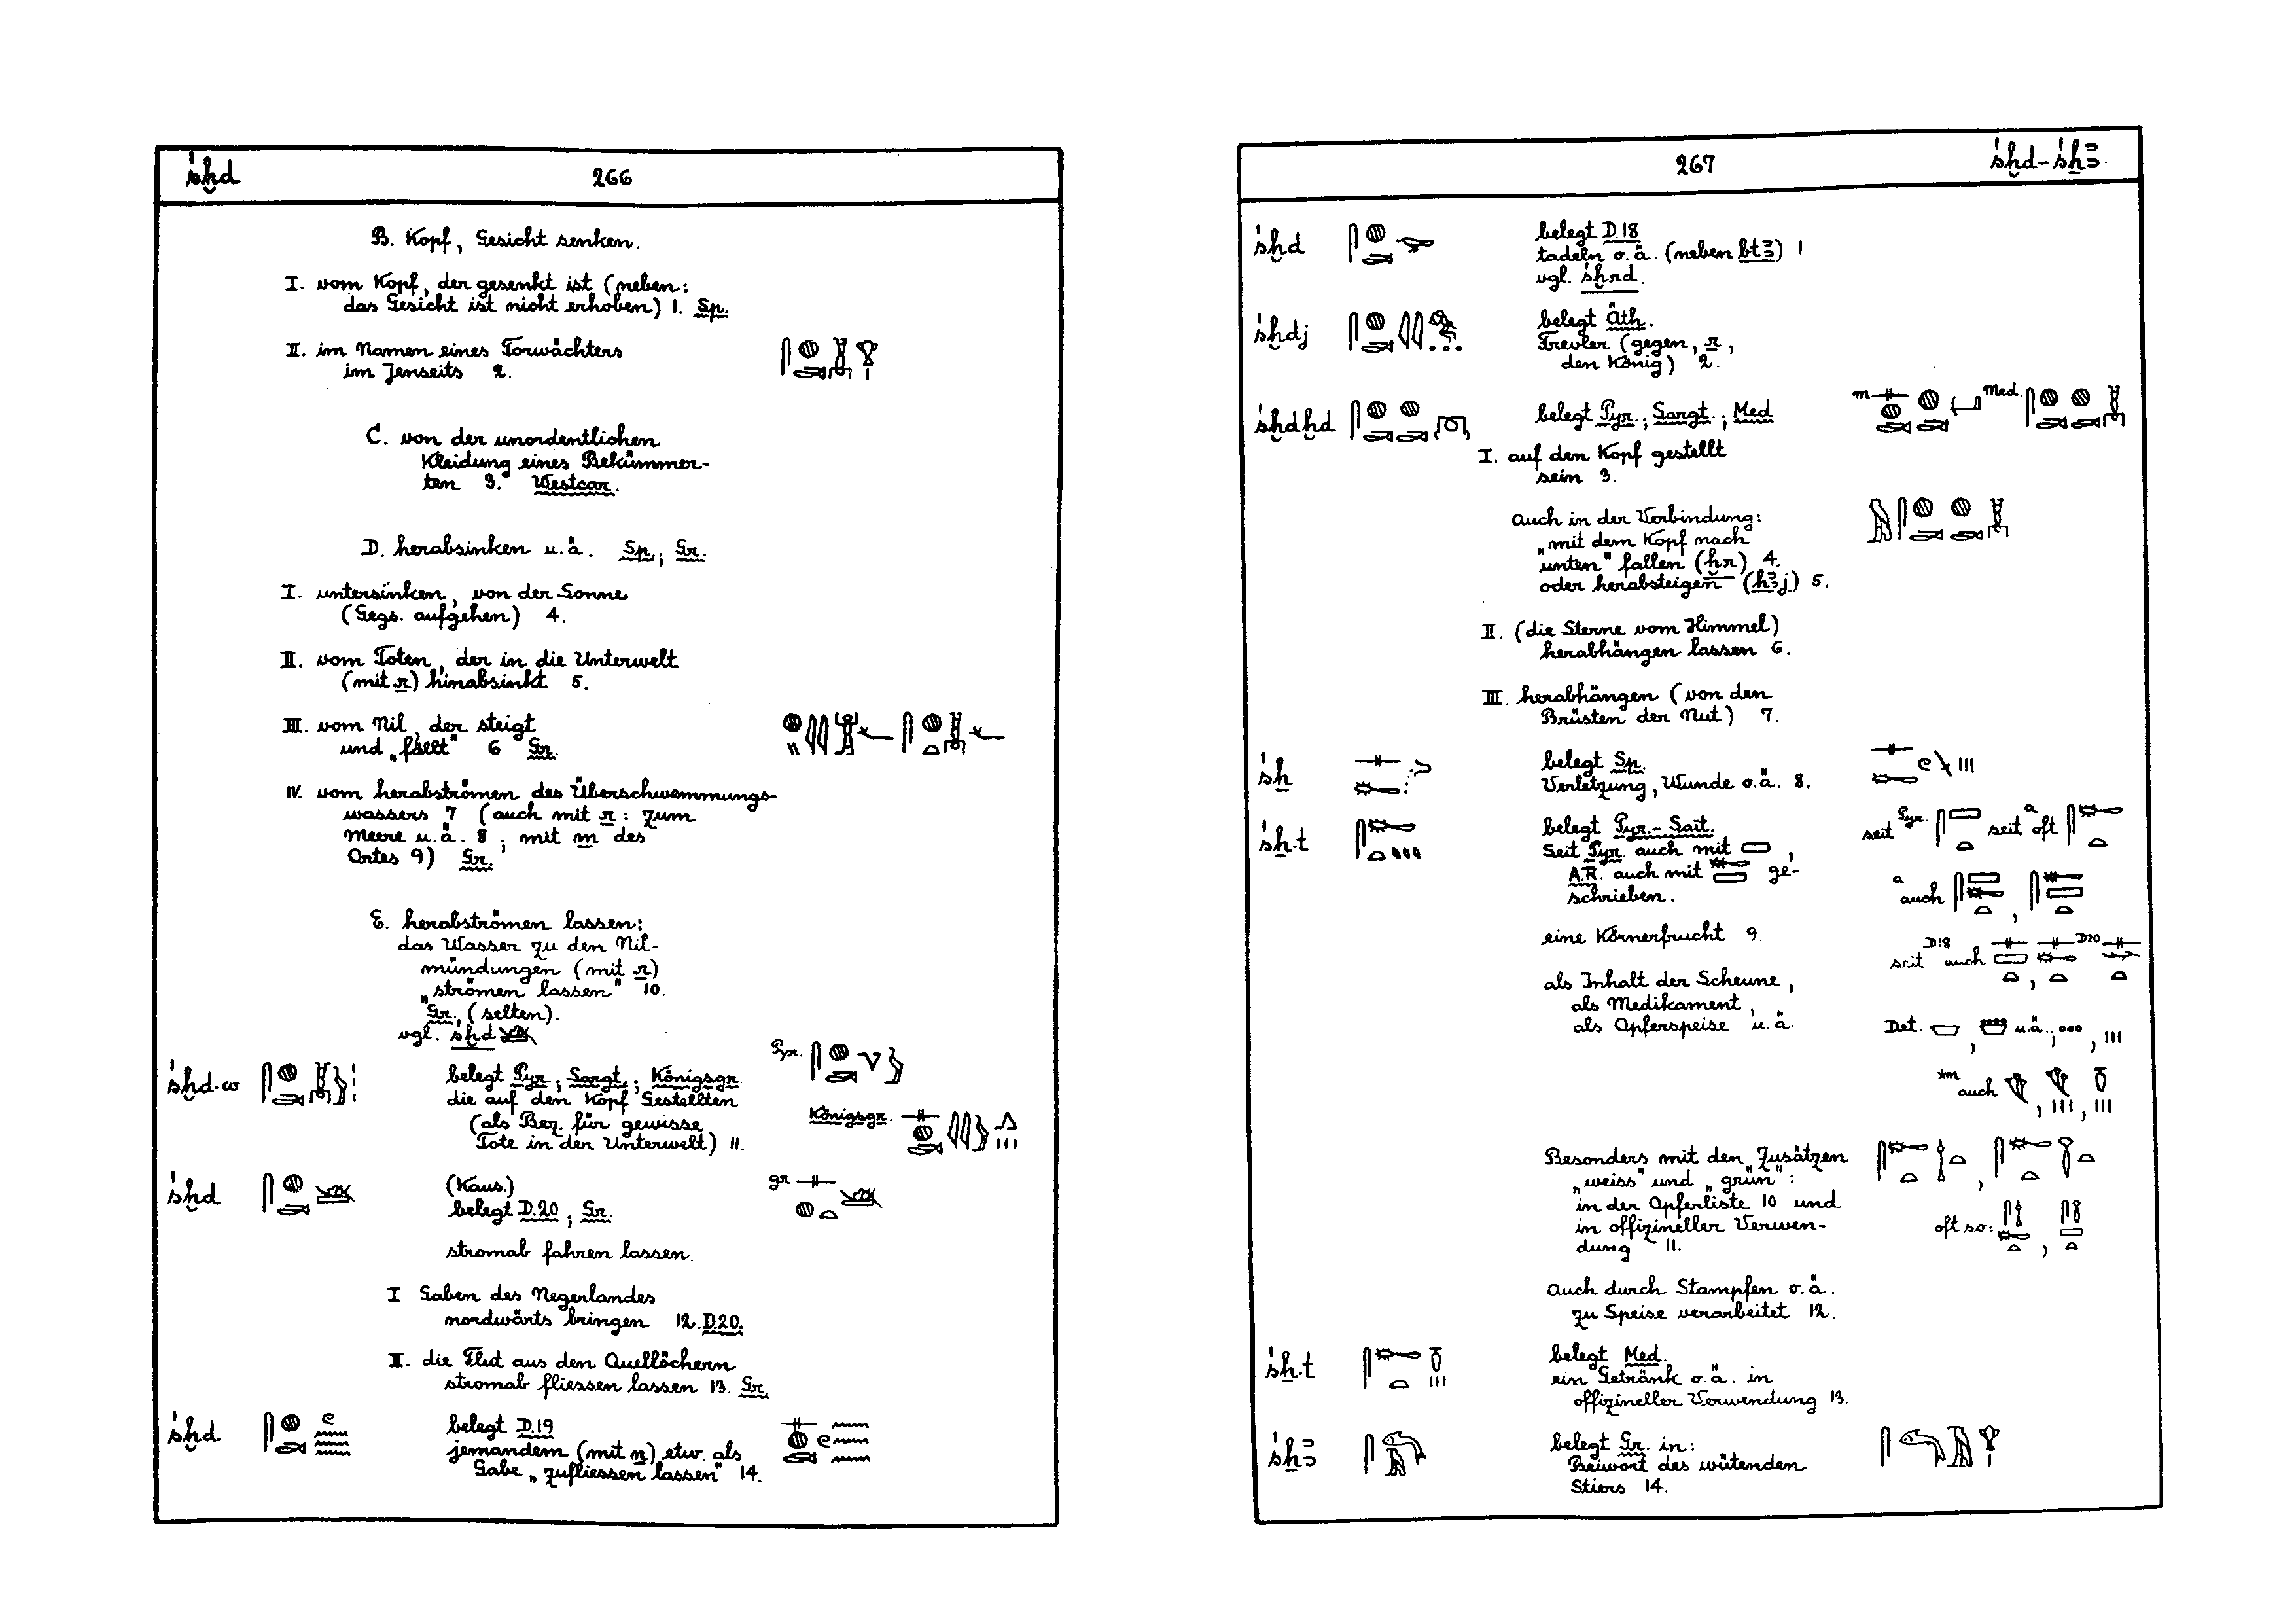 śḫd
266
B. Kopf, Gesicht senken.
I. vom Kopf, der gesenkt ist (neben:
das Gesicht ist nicht erhoben) 1. Sp.
II. im Namen eines Torwächters
im Jenseits 2.
C. von der unordentlichen
Kleidung eines Bekümmer-
ten 3. Westcar.
D. herabsinken u.ä. Sp.; Gr.
I. untersinken, von der Sonne
(Gegs. aufgehen) 4.
II. vom Toten, der in die Unterwelt
(mit r) hinabsinkt 5.
III. vom Nil, der steigt
und „fällt" 6 Gr.
IV. vom herabströmen des Überschwemmungs-
wassers 7 (auch mit r: zum
Meere u.ä. 8; mit m des
Ortes 9) Gr.
E. herabströmen lassen:
das Wasser zu den Nil-
mündungen (mit r)
„strömen lassen" 10.
Gr. (selten).
vgl. śḫd
śḫd.w
belegt Pyr.; Sargt.; Königsgr.
die auf den Kopf Gestellten
(als Bez. für gewisse
Tote in der Unterwelt) 11.
Pyr.
Königsgr.
śḫd
(Kaus.)
belegt D.20; Gr.
gr
stromab fahren lassen.
I. Gaben des Negerlandes
nordwärts bringen 12. D.20.
II. die Flut aus den Quellöchern
stromab fliessen lassen 13. Gr.
śḫd
belegt D.19
jemandem (mit n) etw. als
Gabe „zufliessen lassen" 14.
267
śḫd-śẖꜣ
śḫd
belegt D.18
tadeln o.ä. (neben btꜣ) 1
vgl. śḫrd.
śḫdj
belegt Äth.
Frevler (gegen, r,
den König) 2.
śḫdḫd
belegt Pyr.; Sargt.; Med
m
Med.
I. auf den Kopf gestellt
sein 3.
auch in der Verbindung:
„mit dem Kopf nach
unten" fallen (ḫr) 4.
oder herabsteigen (hꜣj) 5.
II. (die Sterne vom Himmel)
herabhängen lassen 6.
III. herabhängen (von den
Brüsten der Nut) 7.
śẖ
belegt Sp.
Verletzung, Wunde o.ä. 8.
śẖ.t
belegt Pyr.-Sait.
Seit Pyr. auch mit ,
A.R. auch mit ge-
schrieben.
seit Pyr. seit a oft
a auch ,
eine Körnerfrucht 9.
seit D18 auch , D20
als Inhalt der Scheune,
als Medikament,
als Opferspeise u.ä.
Det. , u.ä., ,
*m auch , ,
Besonders mit den Zusätzen
„weiss" und „grün":
in der Opferliste 10 und
in offizineller Verwen-
dung 11.
oft so: ,
auch durch Stampfen o.ä.
zu Speise verarbeitet 12.
śẖ.t
belegt Med.
ein Getränk o.ä. in
offizineller Verwendung 13.
śẖꜣ
belegt Gr. in:
Beiwort des wütenden
Stiers 14.